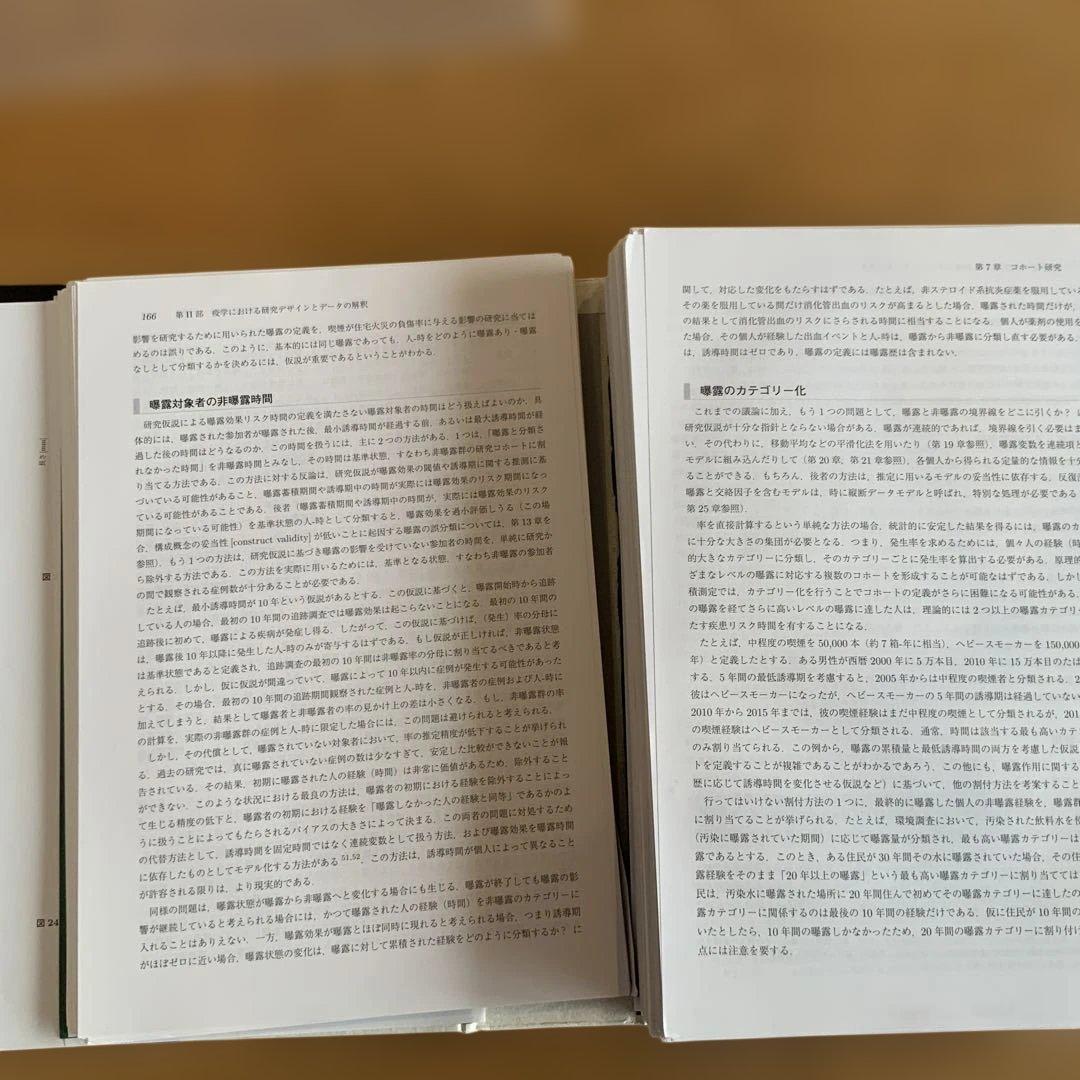 長さ[mm]
図
図 24
166 第 II 部 疫学における研究デザインとデータの解釈
影響を研究するために用いられた曝露の定義を，喫煙が住宅火災の負傷率に与える影響の研究に当ては
めるのは誤りである．このように，基本的には同じ曝露であっても，人-時をどのように曝露あり・曝露
なしとして分類するかを決めるには，仮説が重要であるということがわかる．
曝露対象者の非曝露時間
研究仮説による曝露効果リスク時間の定義を満たさない曝露対象者の時間はどう扱えばよいのか．具
体的には，曝露された参加者が曝露された後，最小誘導時間が経過する前，あるいは最大誘導時間が経
過した後の時間はどうなるのか．この時間を扱うには，主に2つの方法がある．1つは，「曝露と分類さ
れなかった時間」を非曝露時間とみなし，その時間は基準状態，すなわち非曝露群の研究コホートに割
り当てる方法である．この方法に対する反論は，研究仮説が曝露効果の閾値や誘導期に関する推測に基
づいている可能性があること，曝露蓄積期間や誘導期中の時間が実際には曝露効果のリスク期間になっ
ている可能性があることである．後者（曝露蓄積期間や誘導期中の時間が，実際には曝露効果のリスク
期間になっている可能性）を基準状態の人-時として分類すると，曝露効果を過小評価しうる（この場
合，構成概念の妥当性 [construct validity] が低いことに起因する曝露の誤分類については，第 13 章を
参照）．もう1つの方法は，研究仮説に基づき曝露の影響を受けていない参加者の時間を，単純に研究か
ら除外する方法である．この方法を実際に用いるためには，基準となる状態，すなわち非曝露の参加者
の間で観察される症例数が十分あることが必要である．
たとえば，最小誘導時間が 10 年という仮説があるとする．この仮説に基づくと，曝露開始時から追跡
している人の場合，最初の 10 年間の追跡調査では曝露効果は起こらないことになる．最初の 10 年間の
追跡後に初めて，曝露による疾病が発症し得る．したがって，この仮説に基づけば，（発生）率の分母に
は，曝露後 10 年以降に発生した人-時のみが寄与するはずである．もし仮説が正しければ，非曝露状態
は基準状態であると定義され，追跡調査の最初の 10 年間は非曝露率の分母に割り当てるべきであると考
えられる．しかし，仮に仮説が間違っていて，曝露によって 10 年以内に症例が発生する可能性があった
とする．その場合，最初の 10 年間の追跡期間観察された症例と人-時を，非曝露者の症例および人-時に
加えてしまうと，結果として曝露者と非曝露者の率の見かけ上の差は小さくなる．もし，非曝露群の率
の計算を，実際の非曝露群の症例と人-時に限定した場合には，この問題は避けられると考えられる．
しかし，その代償として，曝露されていない対象者において，率の推定精度が低下することが挙げられ
る．過去の研究では，真に曝露されていない症例の数は少なすぎて，安定した比較ができないことが報
告されている．その結果，初期に曝露された人の経験（時間）は非常に価値があるため，除外すること
ができない．このような状況における最良の方法は，曝露者の初期における経験を除外することによっ
て生じる精度の低下と，曝露者の初期における経験を「曝露しなかった人の経験と同等」であるかのよ
うに扱うことによってもたらされるバイアスの大きさによって決まる．この両者の問題に対処するため
の代替方法として，誘導時間を固定時間ではなく連続変数として扱う方法，および曝露効果を曝露時間
に依存したものとしてモデル化する方法がある 51,52．この方法は，誘導時間が個人によって異なること
が許容される限りは，より現実的である．
同様の問題は，曝露状態が曝露から非曝露へと変化する場合にも生じる．曝露が終了しても曝露の影
響が継続していると考えられる場合には，かつて曝露された人の経験（時間）を非曝露のカテゴリーに
入れることはありえない．一方，曝露効果が曝露とほぼ同時に現れると考えられる場合，つまり誘導期
がほぼゼロに近い場合，曝露状態の変化は，曝露に対して累積された経験をどのように分類するか？ に
第 7 章 コホート研究
関して，対応した変化をもたらすはずである．たとえば，非ステロイド系抗炎症薬を服用してい
その薬を服用している間だけ消化管出血のリスクが高まるとした場合，曝露された時間だけが，
の結果として消化管出血のリスクにさらされる時間に相当することになる．個人が薬剤の使用を
た場合，その個人が経験した出血イベントと人-時は，曝露から非曝露に分類し直す必要がある．
は，誘導時間はゼロであり，曝露の定義には曝露歴は含まれない．
曝露のカテゴリー化
これまでの議論に加え，もう1つの問題として，曝露と非曝露の境界線をどこに引くか？
研究仮説が十分な指針とならない場合がある．曝露が連続的であれば，境界線を引く必要はま
い．その代わりに，移動平均などの平滑化法を用いたり（第 19 章参照），曝露変数を連続項
モデルに組み込んだりして（第 20 章，第 21 章参照），各個人から得られる定量的な情報を十分
ることができる．もちろん，後者の方法は，推定に用いるモデルの妥当性に依存する．反復
曝露と交絡因子を含むモデルは，時に縦断データモデルと呼ばれ，特別な処理が必要である
第 25 章参照）．
率を直接計算するという単純な方法の場合，統計的に安定した結果を得るには，曝露のカ
に十分な大きさの集団が必要となる．つまり，発生率を求めるためには，個々人の経験（時
的大きなカテゴリーに分類し，そのカテゴリーごとに発生率を算出する必要がある．原理的
ざまなレベルの曝露に対応する複数のコホートを形成することが可能なはずである．しかし
積測定では，カテゴリー化を行うことでコホートの定義がさらに困難になる可能性がある．
の曝露を経てさらに高いレベルの曝露に達した人は，理論的には2つ以上の曝露カテゴリー
たす疾患リスク時間を有することになる．
たとえば，中程度の喫煙を 50,000 本（約 7 箱-年に相当），ヘビースモーカーを 150,000
年）と定義したとする．ある男性が西暦 2000 年に 5 万本目，2010 年に 15 万本目のたば
する．5 年間の最低誘導期を考慮すると，2005 年からは中程度の喫煙者と分類される．2
彼はヘビースモーカーになったが，ヘビースモーカーの 5 年間の誘導期は経過していない
2010 年から 2015 年までは，彼の喫煙経験はまだ中程度の喫煙として分類されるが，201
の喫煙経験はヘビースモーカーとして分類される．通常，時間は該当する最も高いカテゴ
のみ割り当てられる．この例から，曝露の累積量と最低誘導時間の両方を考慮した仮説
トを定義することが複雑であることがわかるであろう．この他にも，曝露作用に関する
歴に応じて誘導時間を変化させる仮説など）に基づいて，他の割付方法を考案すること
行ってはいけない割付方法の1つに，最終的に曝露した個人の非曝露経験を，曝露群
に割り当てることが挙げられる．たとえば，環境調査において，汚染された飲料水を使
（汚染に曝露されていた期間）に応じて曝露量が分類され，最も高い曝露カテゴリーは
露であるとする．このとき，ある住民が 30 年間その水に曝露されていた場合，その住
露経験をそのまま「20 年以上の曝露」という最も高い曝露カテゴリーに割り当てては
民は，汚染水に曝露された場所に 20 年間住んで初めてその曝露カテゴリーに達したの
露カテゴリーに関係するのは最後の 10 年間の経験だけである．仮に住民が 10 年間の
いたとしたら，10 年間の曝露しかなかったため，20 年間の曝露カテゴリーに割り付け
点には注意を要する．